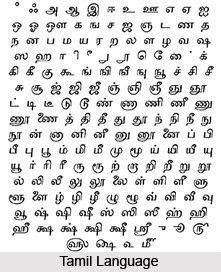 ஃ அ ஆ இ ஈ உ ஊ எ ஏ ஐ
ஒ ஓ ஔ க ங ச ஜ ஞ ட ண த
ந ன ப ம ய ர ற ல ள ழ வ ஷ
ஸ ஹ
கி கீ கு கூ ஙி ஙீ ஙு ஙூ சி சீ
சு சூ ஜி ஜீ ஜு ஜூ ஞி ஞீ ஞு ஞூ
டி டீ டு டூ ணி ணீ ணு
ணூ ணை தி தீ து தூ ந் நி நீ நு
நூ ன் னி னீ னு னூ னை ப் பி
பீ பு பூ ம் மி மீ மு மூ ய் யி யீ யு
யூ ர் ரி ரீ ரு ரூ ற் றி றீ று றூ
ல் லி லீ லு லூ லை ள் ளி ளீ ளு
ளூ ளை ழ் ழி ழீ ழு ழூ வ் வி வீ வு
வூ ஷ் ஷி ஷீ ஸ் ஸி ஸீ ஹ் ஹி
ஹீ க்ஷ க்ஷ் க்ஷி க்ஷீ ஸ்ரீ
Tamil Language